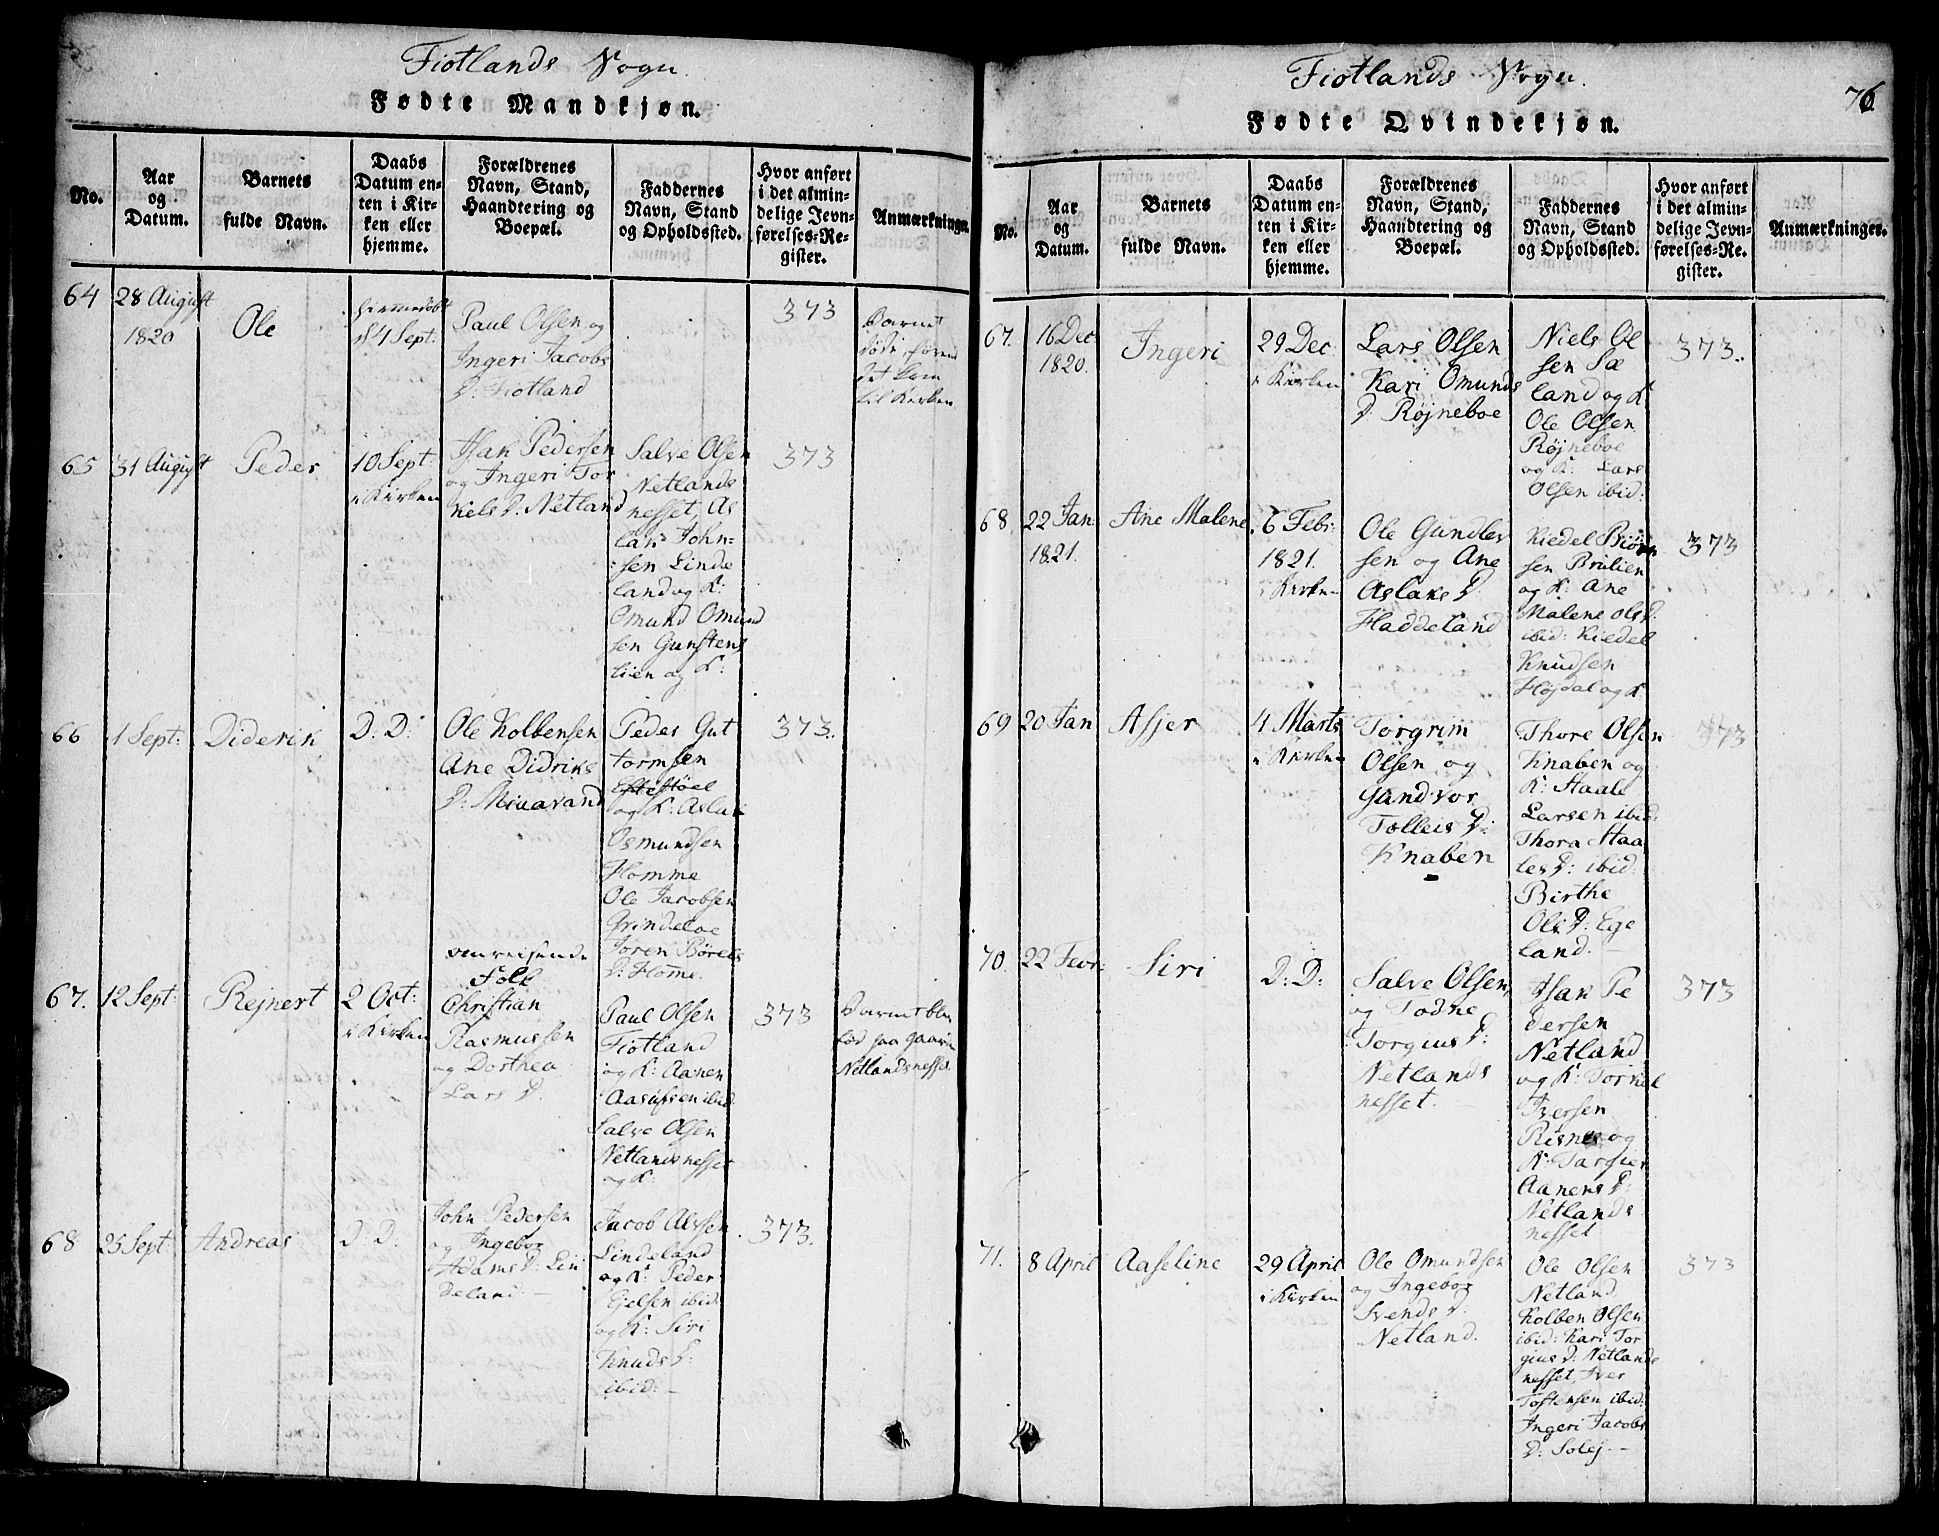 Fiotlands Sogn.
Fødte Mandkjøn.
No.
Aar
og
Datum.
Barnets
fulde Navn.
Daabs
Datum en-
ten i Kir-
ken eller
hjemme.
Forældrenes
Navn, Stand,
Haandtering og
Boepæl.
Faddernes
Navn, Stand
og Opholdssted.
Hvor anført
i det almin-
delige Jevn-
førelses-Re-
gister.
Anmærkninger.
64
28 August
1820
Ole
hjemmedøbt
4 Sept:
Paul Olsen og
Ingeri Jacobs
D: Fiotland
373
Barnet
døde førend
det kom
til Kirken
65
31 August
Peder
10 Sept:
i Kirken
Asak Pedersen
og Ingeri Tor
kels D: Netland
Salve Olsen
Netlands
nesset, As
lak John-
sen Linde
land og K:
Omund Omund
sen Gunstens
lien og K:
373
66
1 Sept:
Diderik
D: D:
Ole Kolbensen
Ane Didriks
D: Miaavand
Peder Gut
tormsen
Eftestøel
og K: Aslak
Osmundsen
Homme
Ole Jacobsen
Grindeloe
Joren Børels
D: Home.
373.
67.
12 Sept:
Rejnert
2 Oct:
i Kirken
omreisende
Folk
Christian
Rasmussen
og Dorthea
Lars D.
Paul Olsen
Fiotland
og K: Aanen
Aasulfsen ibid
Salve Olsen
Netlandsnesset
og K:
373
Barnet blev
fød paa Gaarden
Netlandsnesset
68
25 Sept:
Andreas
D: D.
John Pedersen
og Ingebor
Adams D: Lin
deland. -
Jacob Alfsen
Lindeland
og K: Peder
Gjelsen ibid
og K: Siri
Knuds D:
ibid: -
373.
Fiotlands Sogn.
76
Fødte Qvindekjøn.
No.
Aar
og
Datum.
Barnets
fulde Navn.
Daabs
Datum en-
ten i Kir-
ken eller
hjemme.
Forældrenes
Navn, Stand,
Haandtering og
Boepæl.
Faddernes
Navn, Stand
og Opholdssted.
Hvor anført
i det almin-
delige Jevn-
førelses-Re-
gister.
Anmærkninger.
67.
16 Dec
1820.
Ingeri
29 Dec
i Kirken
Lars Olsen
Kari Omunds
D. Røjneboe
Niels Ol
sen Sæ
land og K:
Ole Olsen
Røjneboe
og K: Lars
Olsen ibid:
373.
68
22 Jan:
1821.
Ane Malene
6 Febr:
1821.
i Kirken
Ole Gundler
sen og Ane
Aslaks D:
Haddeland
Kiedel Biørn
sen Brulien
og K: Ane
Malene Ols D.
ibid: Kiedel
Knudsen
Højdal og K
373
69
20 Jan
Asjer
4 Marts
i Kirken
Torgrim
Olsen og
Gandvor
Tolleis D:
Knaben
Thore Olsen
Knaben og
K: Haale
Larsen ibid:
Thora Haa
les D: ibid:
Birthe
Ols D: Ege
land.
373
70.
22 Febr:
Siri
D: D:
Salve Olsen
og Todne
Torgius D:
Netlands
nesset.
Asak Pe
dersen
Netland
og K: Torkel
Iversen
Risnes og
K: Targier
Aanens D:
Netlands
nesset
373
71.
8 April
Aaseline
29 April
i Kirken
Ole Omundsen
og Ingebor
Svends D.
Netland.
Ole Olsen
Netland
Kolben Olsen
ibid: Kari Tor
gius D: Netlands
nesset, Iver
Tostensen ibid:
Ingeri Jacobs
D: Solej. -
373